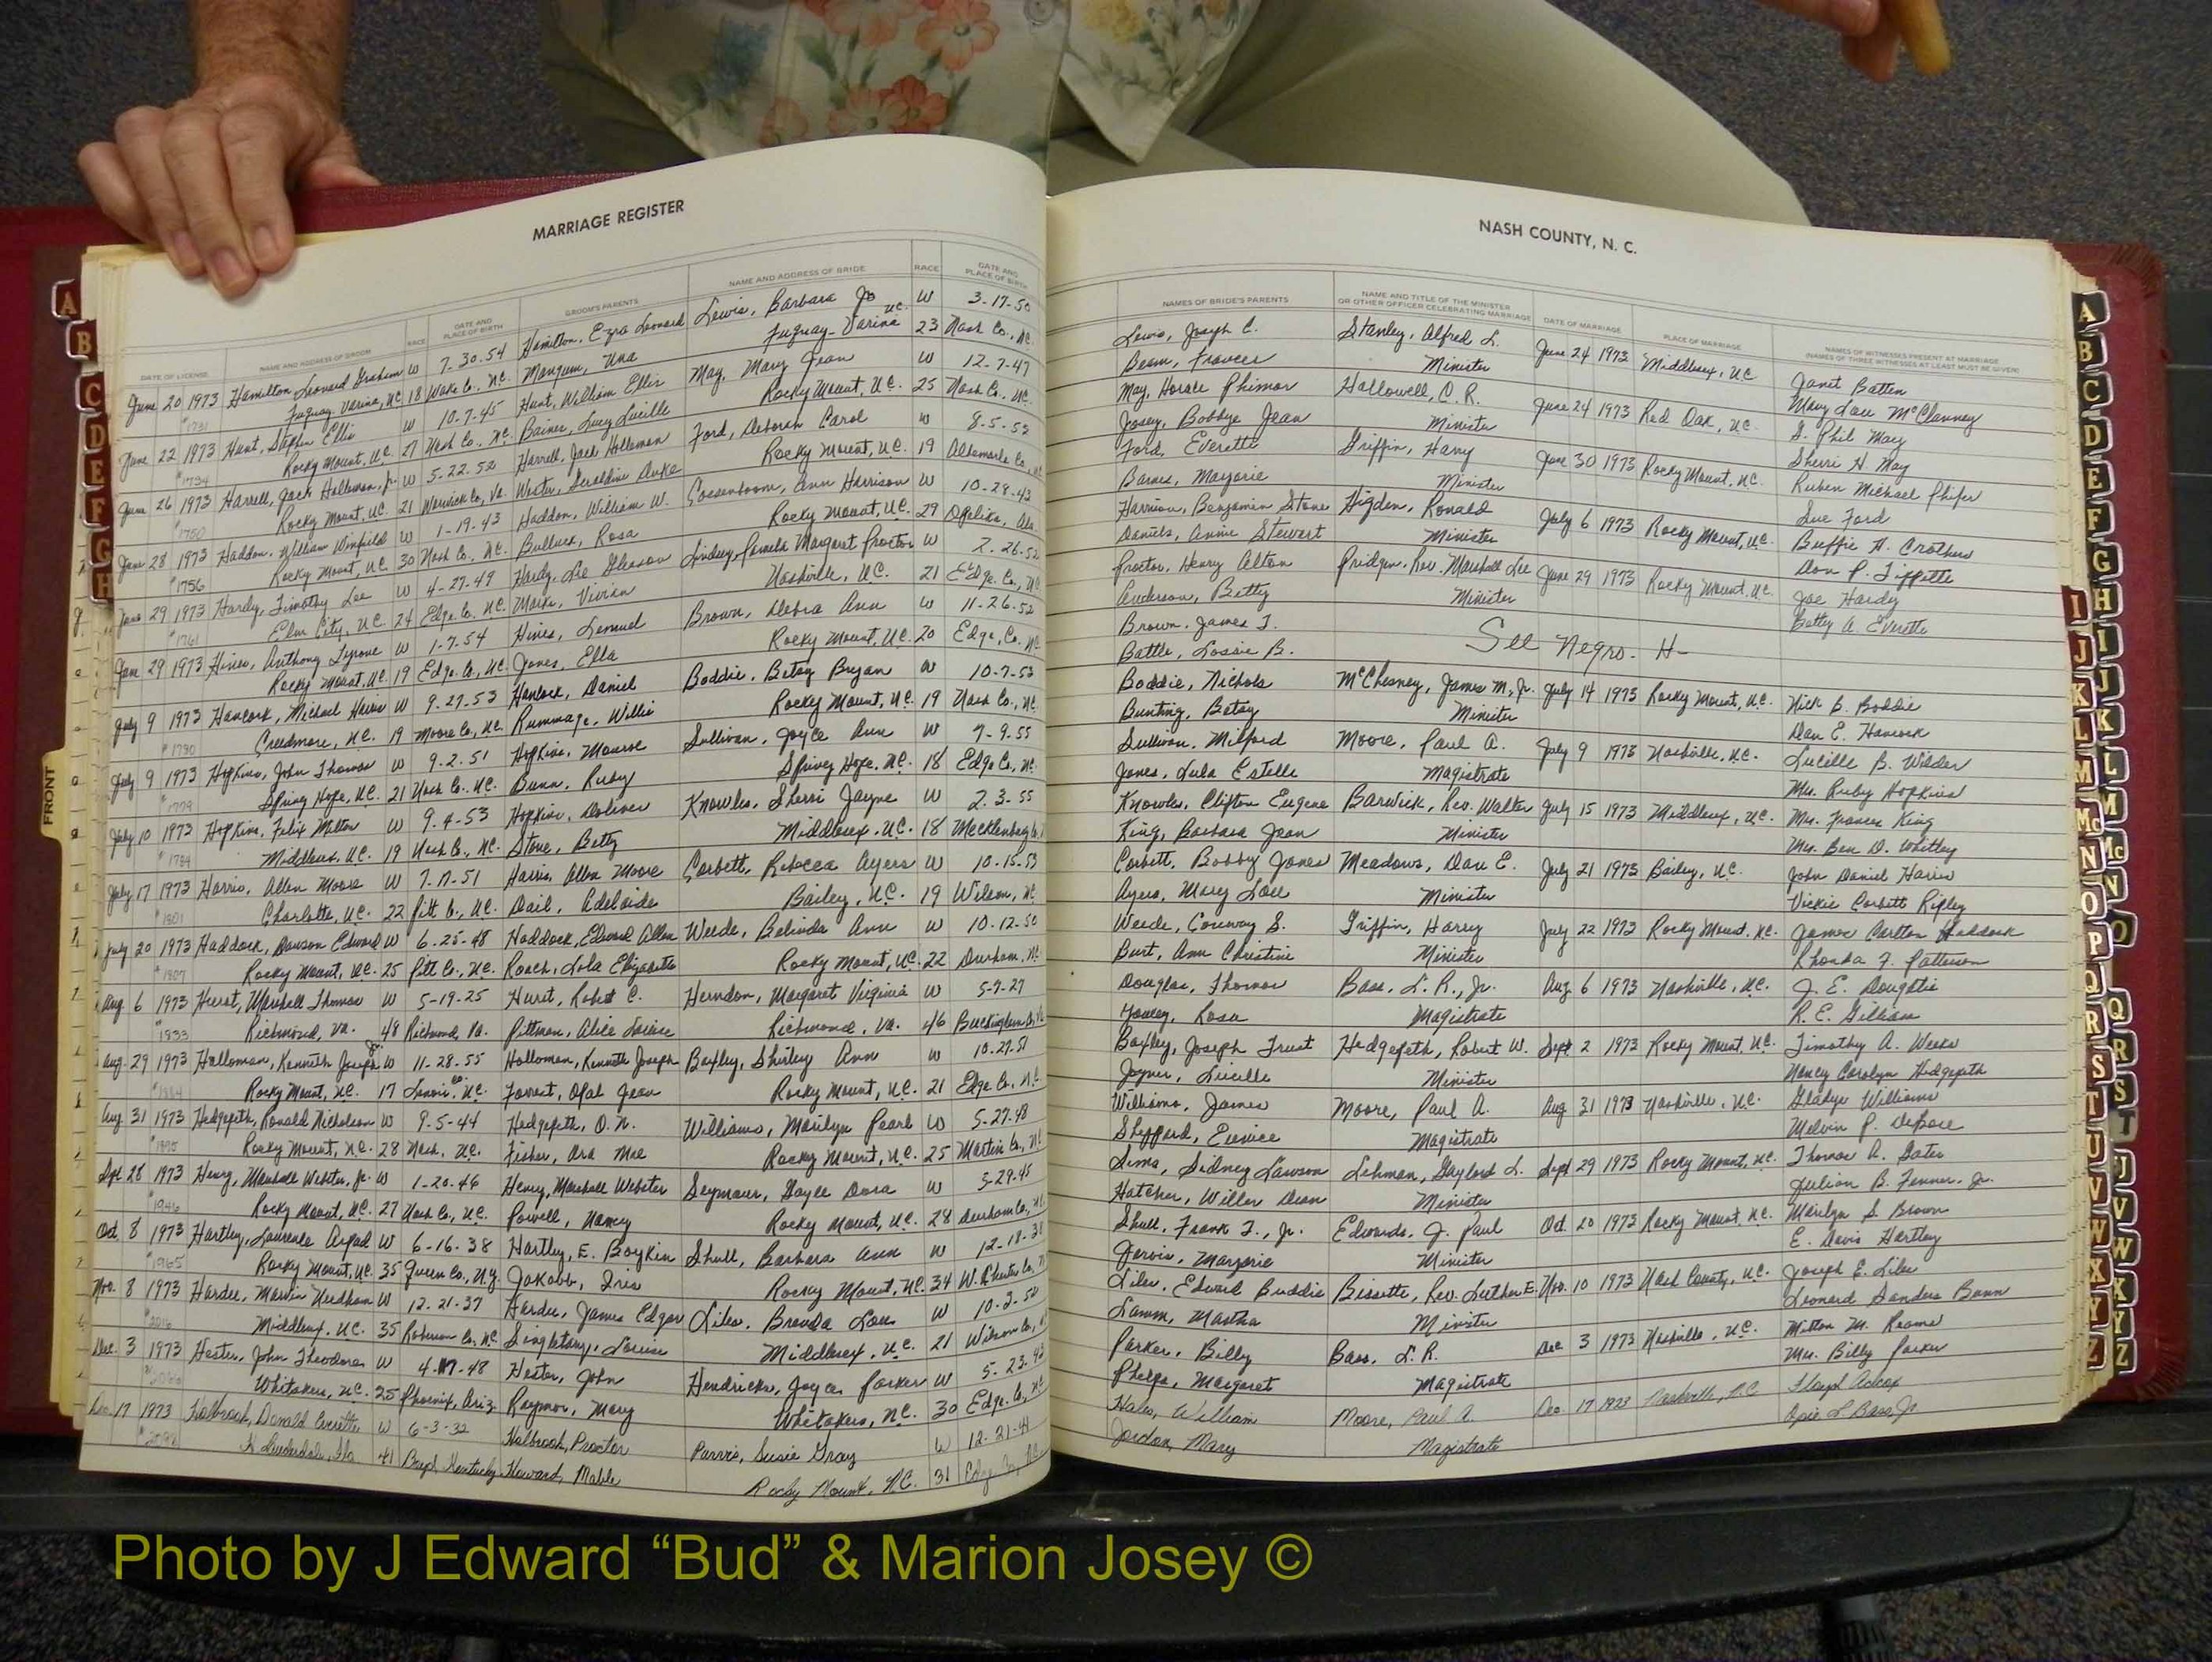 MARRIAGE REGISTER
DATE OF LICENSE NAME AND ADDRESS OF GROOM RACE DATE AND PLACE OF BIRTH GROOM'S PARENTS NAME AND ADDRESS OF BRIDE RACE DATE AND PLACE OF BIRTH
June 20 1973 Hamilton, Leonard Graham W 7-30-54 Hamilton, Ezra Leonard Lewis, Barbara Jo W 3-17-50
#1731 Fuquay Varina, N.C. 18 Wake Co., N.C. Mangum, Una Fuquay-Varina N.C. 23 Nash Co., N.C.
June 22 1973 Hunt, Stephen Ellis W 10-7-45 Hunt, William Ellis May, Mary Jean W 12-7-47
#1734 Rocky Mount, N.C. 27 Nash Co., N.C. Bainer, Lucy Lucille Rocky Mount, N.C. 25 Nash Co., N.C.
June 26 1973 Harrell, Jack Holloman, Jr. W 5-22-52 Harrell, Jack Holloman Ford, Deborah Carol W 8-5-53
#1750 Rocky Mount, N.C. 21 Warwick Co., Va. Wester, Geraldine Duke Rocky Mount, N.C. 19 Albemarle Co.,
June 28 1973 Haddon, William Winfield W 1-19-43 Haddon, William W. Ann Harrison W 10-28-43
#1756 Rocky Mount, N.C. 30 Nash Co., N.C. Bulluck, Rosa Rocky Mount, N.C. 29 Opelika, Ala.
June 29 1973 Hardy, Timothy Lee W 4-27-49 Hardy, Lee Gleason Lindsey, Pamela Margaret Proctor W 2-26-52
#1761 Elm City, N.C. 24 Edge. Co., N.C. Vivian Nashville, N.C. 21 Edge. Co., N.C.
June 29 1973 Hines, Anthony Tyrone W 1-7-54 Hines, Lemuel Brown, Debra Ann W 11-26-52
Rocky Mount, N.C. 19 Edge. Co., N.C. Jones, Ella Rocky Mount, N.C. 20 Edge. Co., N.C.
July 9 1973 Hancock, Michael W 9-27-53 Hancock, Daniel Boddie, Betsy Bryan W 10-7-53
#1790 Creedmore, N.C. 19 Moore Co., N.C. Rummage, Willie Rocky Mount, N.C. 19 Nash Co., N.C.
July 9 1973 Hopkins, John Thomas W 9-2-51 Hopkins, Monroe Sullivan, Joyce Ann W 7-9-55
#1779 Spring Hope, N.C. 21 Nash Co., N.C. Bunn, Ruby Spring Hope, N.C. 18 Edge Co., N.C.
July 10 1973 Hopkins, Felix Milton W 9-4-53 Hopkins, Doliver Knowles, Sherri Jayne W 2-3-55
#1784 Middlesex, N.C. 19 Nash Co., N.C. Stone, Betty Middlesex, N.C. 18 Mecklenburg
July 17 1973 Harris, Allen Moore W 7-17-51 Harris, Allen Moore Corbett, Rebecca Ayers W 10-15-53
#1801 Charlotte, N.C. 22 Pitt Co., N.C. Dail, Adelaide Bailey, N.C. 19 Wilson, N.C.
July 20 1973 Haddock, Dawson Edward W 6-25-48 Haddock, Edward Allen Weede, Belinda Ann W 10-12-50
#1807 Rocky Mount, N.C. 25 Pitt Co., N.C. Roach, Lola Elizabeth Rocky Mount, N.C. 22 Durham, N.C.
Aug. 6 1973 Hurst, Marshall Thomas W 5-19-25 Hurst, Robert C. Herndon, Margaret Virginia W 5-7-27
#1833 Richmond, Va. 48 Richmond, Va. Pittman, Alice Louise Richmond, Va. 46 Buckingham
Aug 29 1973 Holloman, Kenneth Joseph Jr. W 11-28-55 Holloman, Kenneth Joseph Baxley, Shirley Ann W 10-27-51
#1884 Rocky Mount, N.C. 17 Lenoir Co. N.C. Forrest, Opal Jean Rocky Mount, N.C. 21 Edge Co., N.C.
Aug 31 1973 Hedgepeth, Ronald Nicholson W 9-5-44 Hedgepeth, O. N. Williams, Marilyn Pearl W 5-27-48
#1895 Rocky Mount, N.C. 28 Nash, N.C. Fisher, Ora Mae Rocky Mount, N.C. 25 Martin Co., N.C.
Sept 28 1973 Henry, Marshall Webster, Jr. W 1-20-46 Henry, Marshall Webster Seymour, Gayle Dora W 5-29-45
#1946 Rocky Mount, N.C. 27 Nash Co., N.C. Powell, Nancy Rocky Mount, N.C. 28 Durham Co., N.C.
Oct 8 1973 Hartley, Laurence Arpad W 6-16-38 Hartley, E. Boykin Shull, Barbara Ann W 12-18-38
#1965 Rocky Mount, N.C. 35 Queen Co., N.Y. Jakobb, Iris Rocky Mount, N.C. 34 W. Chester Co.,
Nov. 8 1973 Hardee, Marvin Needham W 12-21-37 Hardee, James Edgar Liles, Brenda Lou W 10-3-52
Middlesex, N.C. 35 Robeson Co., N.C. Singletary, Louise Middlesex, N.C. 21 Wilson Co.,
Dec. 3 1973 Hester, John Theodore W 4-17-48 Hester, John Hendricks, Joyce Parker W 5-23-43
Whitakers, N.C. 25 Phoenix, Ariz. Raymor, Mary Whitakers, N.C. 30 Edge. Co., N.C.
Dec. 17 1973 Holbrook, Donald Everette W 6-3-32 Holbrook, Proctor Parris, Susie Gray W 12-21-41
Ft. Lauderdale, Fla 41 Boyd, Kentucky Howard, Mable Rocky Mount, N.C. 31 Edge Co., N.C.
NASH COUNTY, N. C.
NAMES OF BRIDE'S PARENTS NAME AND TITLE OF THE MINISTER OR OTHER OFFICER CELEBRATING MARRIAGE DATE OF MARRIAGE PLACE OF MARRIAGE NAMES OF WITNESSES PRESENT AT MARRIAGE (NAMES OF THREE WITNESSES AT LEAST MUST BE GIVEN)
Lewis, Joseph C. Stanley, Alfred L. June 24 1973 Middlesex, N.C. Janet Batten
Beam, Frances Minister Mary Lou McClanney
May, Horace Phimor Hallowell, C. R. June 24 1973 Red Oak, N.C. G. Phil May
Josey, Bobbye Jean Minister Sherri H. May
Ford, Everette Griffin, Harry June 30 1973 Rocky Mount, N.C. Ruben Michael Phifer
Barnes, Marjorie Minister Sue Ford
Harrison, Benjamin Stone Higden, Ronald July 6 1973 Rocky Mount, N.C. Buffie H. Crothers
Daniels, Annie Stewart Minister Don P. Tippette
Proctor, Henry Alton Pridgen, Rev. Marshall Lee June 29 1973 Rocky Mount, N.C. Joe Hardy
Anderson, Betty Minister Betty A. Everette
Brown, James T. See Negro - H-
Battle, Lossie B.
Boddie, Nichols McChesney, James M., Jr. July 14 1973 Rocky Mount, N.C. Nick B. Boddie
Bunting, Betsy Minister Dan E. Hancock
Sullivan, Milford Moore, Paul A. July 9 1973 Nashville, N.C. Lucille B. Wilder
Jones, Lula Estelle Magistrate Mrs. Ruby Hopkins
Knowles, Clifton Eugene Barwick, Rev. Walter July 15 1973 Middlesex, N.C. Mrs. Frances King
King, Barbara Jean Minister Mrs. Ben D. Whitley
Corbett, Bobby Jones Meadows, Dan E. July 21 1973 Bailey, N.C. John Daniel Harris
Ayers, Mary Lou Minister Vickie Corbett Ripley
Weede, Conway S. Griffin, Harry July 22 1973 Rocky Mount, N.C. James Carlton Haddock
Burt, Ann Christine Minister Rhonda F. Patterson
Douglas, Thomas Bass, L. R., Jr. Aug 6 1973 Nashville, N.C. J. E. Douglas
Rosa Magistrate R. E. Gilliam
Baxley, Joseph Trust Hedgepeth, Robert W. Sept 2 1973 Rocky Mount, N.C. Timothy A. Weeks
Joyner, Lucille Minister Nancy Carolyn Hedgepeth
Williams, James Moore, Paul A. Aug 31 1973 Nashville, N.C. Gladys Williams
Sheppard, Eunice Magistrate Melvin P.
Sima, Sidney Lawson Lehman, Gaylord L. Sept 29 1973 Rocky Mount, N.C. Thomas A. Gates
Hatcher, Willer Dean Minister Julian B. Fenner, Jr.
Shull, Frank T., Jr. Edwards, J. Paul Oct. 20 1973 Rocky Mount, N.C. Marilyn S. Brown
Jervis, Marjorie Minister E. Davis Hartley
Liles, Edward Buddie Bissette, Rev. Luther E. Nov. 10 1973 Nash County, N.C. Joseph E. Liles
Lamm, Martha Minister Leonard Sanders Bunn
Parker, Billy Bass, L. R. Dec 3 1973 Nashville, N.C. Milton M.
Phelps, Margaret Magistrate Mrs. Billy Parker
Hales, William Moore, Paul A. Dec. 17 1973 Nashville, N.C. Floyd Adcox
Jordon, Mary Magistrate L Bass, Jr.
FRONT
A
B
C
D
E
F
G
H
I
J
K
L
M
Mc
N
O
P
Q
R
S
T
U
V
W
X
Y
Z
A
B
C
D
E
F
G
H
I
J
K
L
M
Mc
N
O
Q
R
S
T
J
V
W
X
Y
Z
Photo by J Edward “Bud” & Marion Josey ©